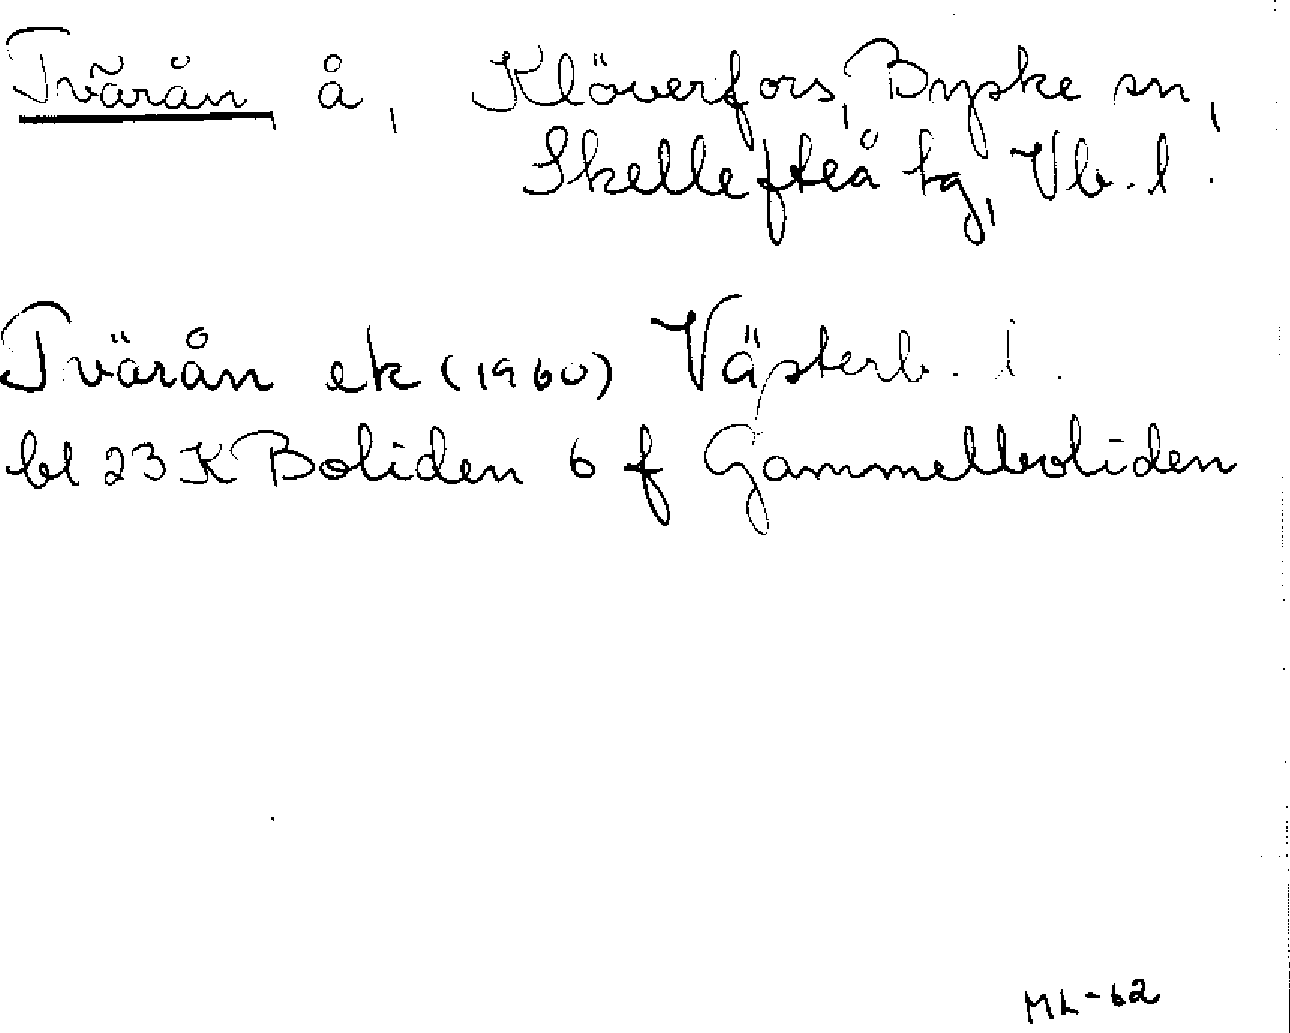 Tvärån, å, Klöverfors, Byske sn,
Skellefteå tg, Vb. l.
Tvärån ek (1960) Västerb. l.
bl 23 K Boliden 6 f Gammelboliden
ML-62